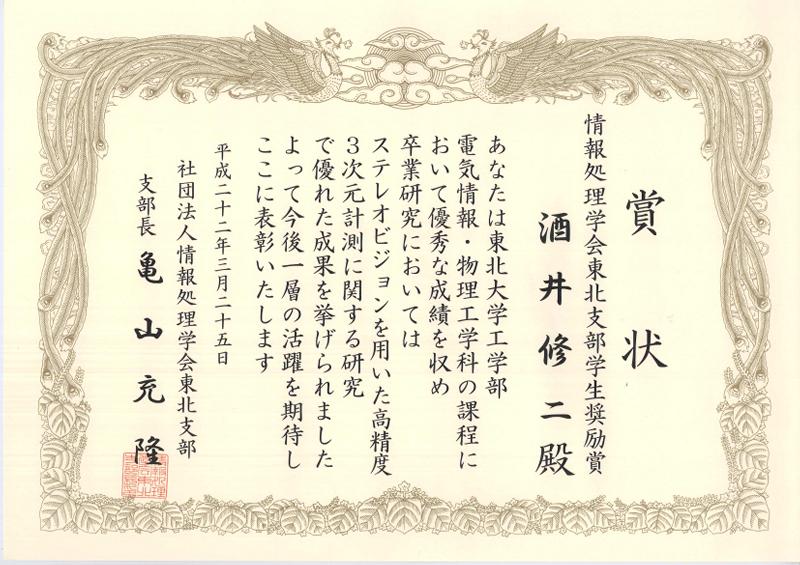 賞状
情報処理学会東北支部学生奨励賞
酒井修二殿
あなたは東北大学工学部
電気情報・物理工学科の課程に
おいて優秀な成績を収め
卒業研究においては
ステレオビジョンを用いた高精度
3次元計測に関する研究
で優れた成果を挙げられました
よって今後一層の活躍を期待し
ここに表彰いたします
平成二十二年三月二十五日
社団法人情報処理学会東北支部
支部長 亀山充隆